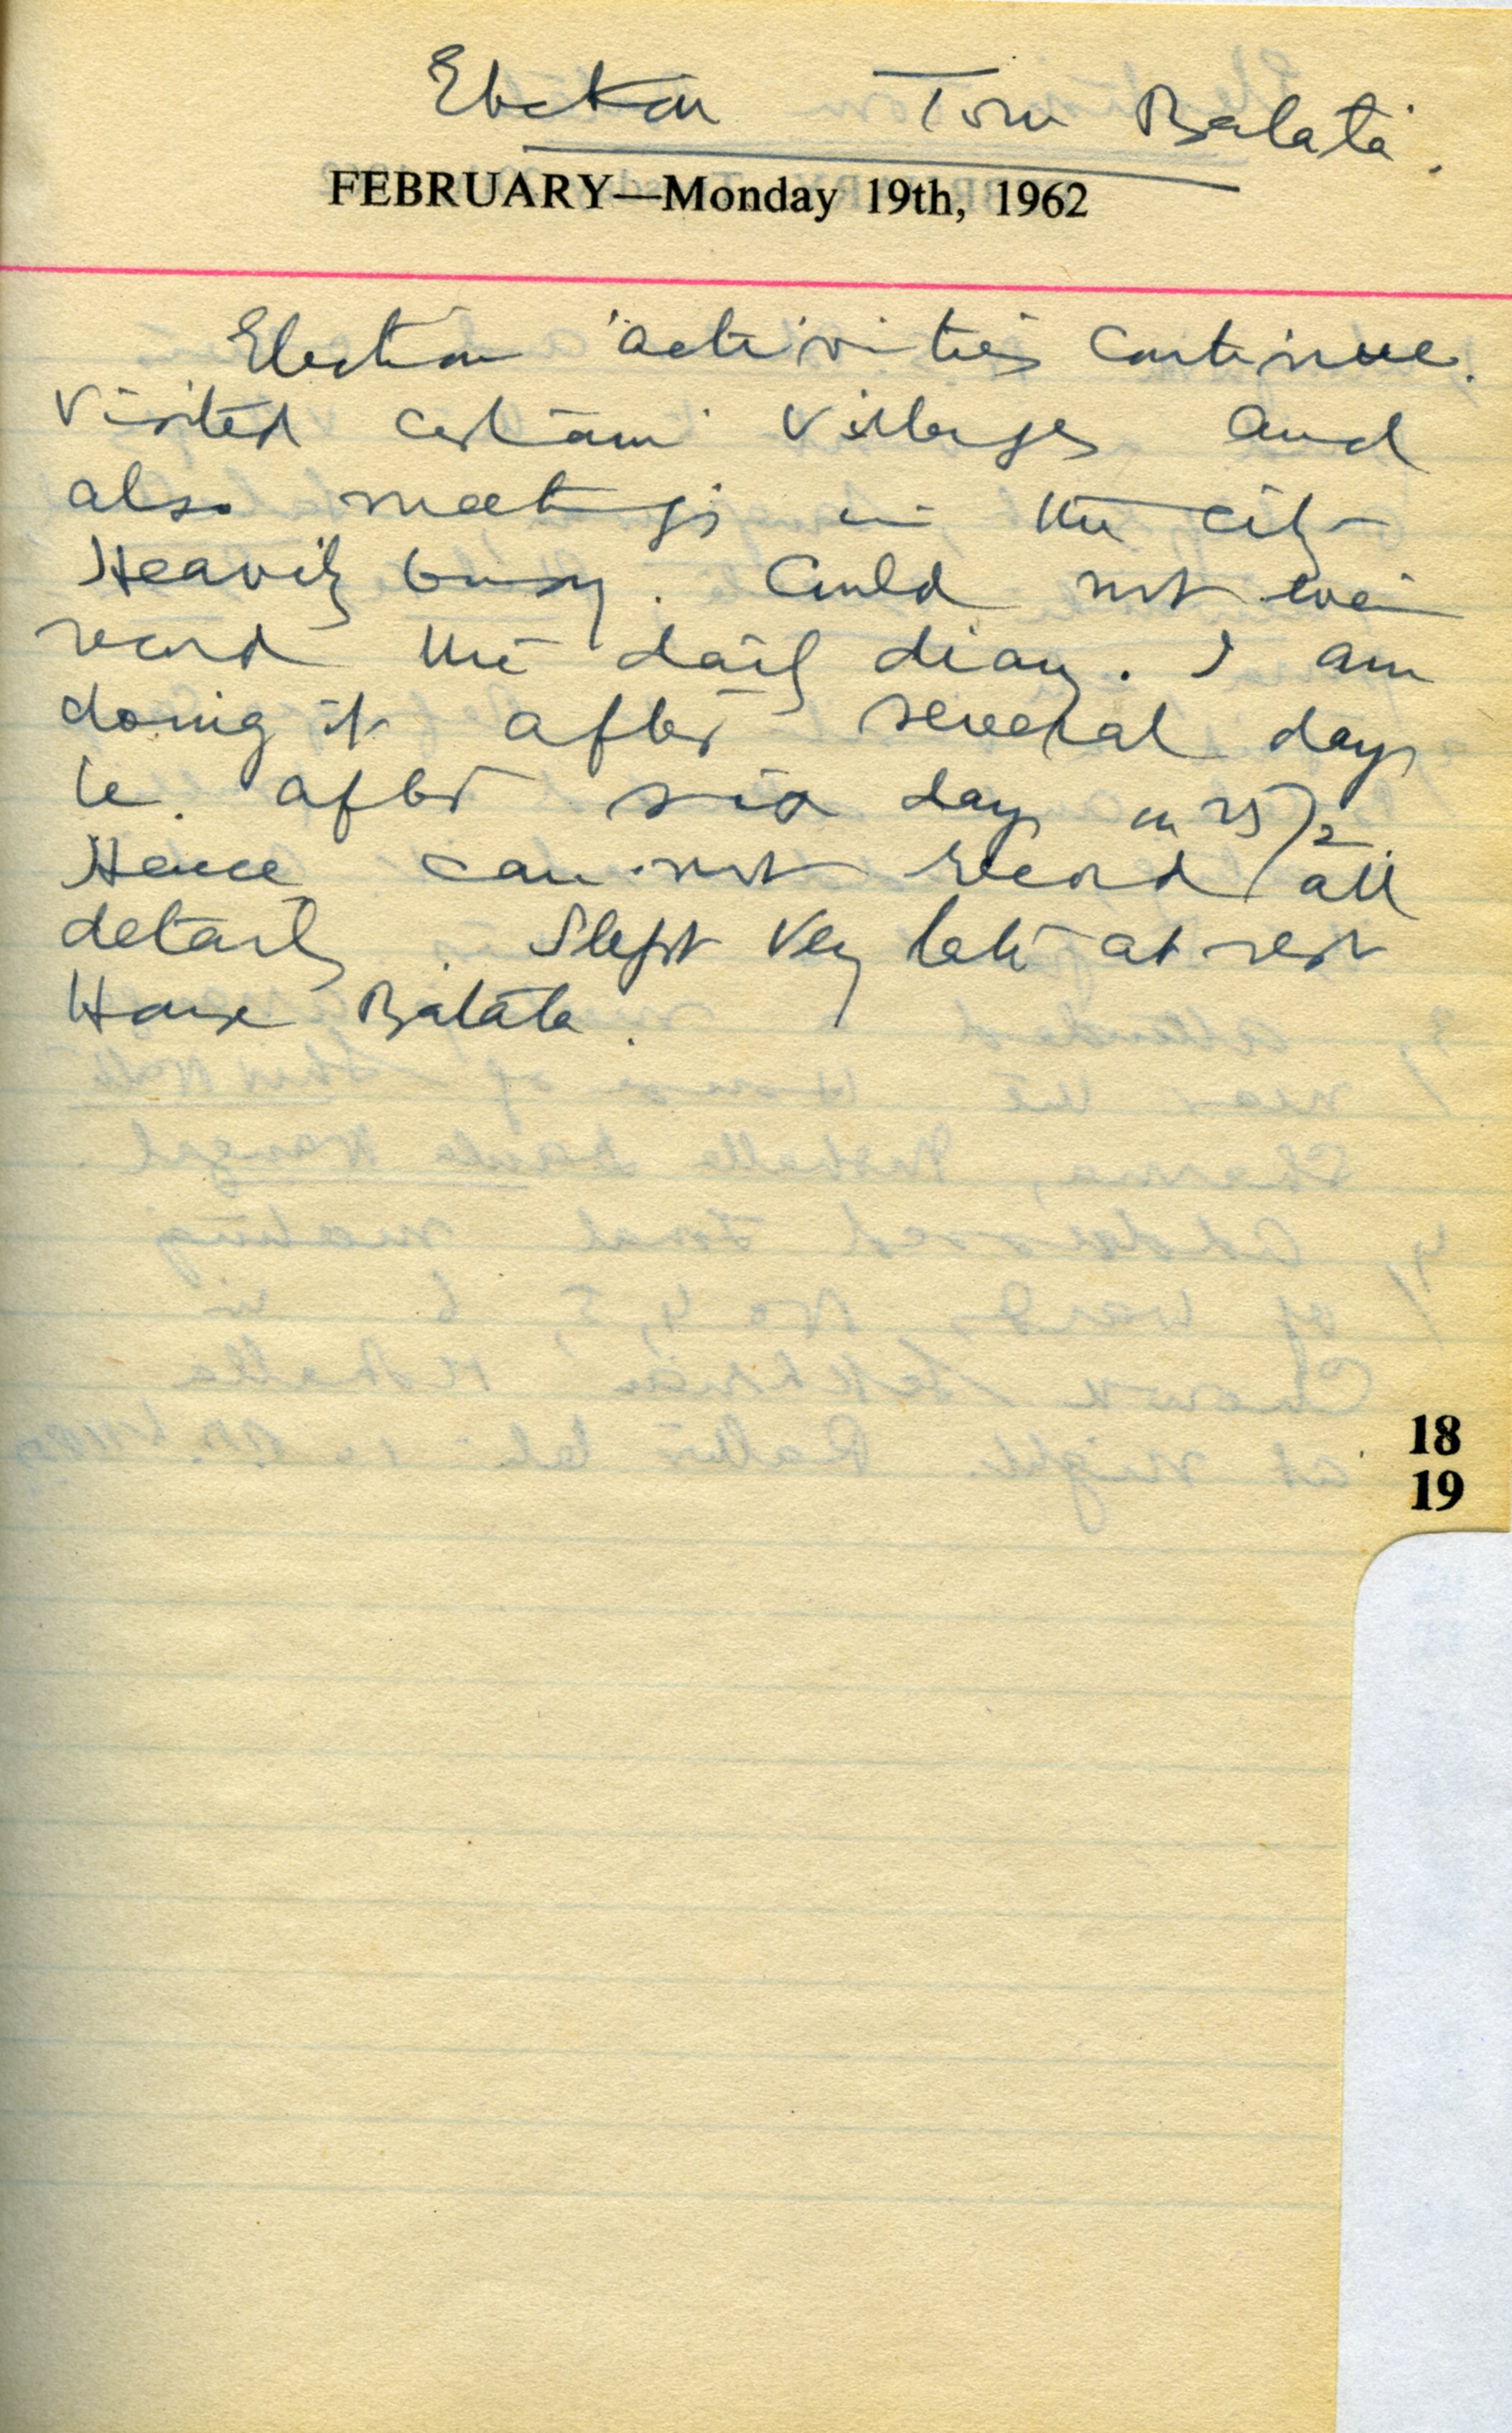 Election Tour Batala.
FEBRUARY—Monday 19th, 1962
Election activities continue.
Visited certain villages and
also meetings in the city
Heavily busy. Could not even
record the daily diary. I am
doing it after several days
ie. after six days on 25/2.
Hence can not record all
details. Slept very late at rest
House Batala.
18
19